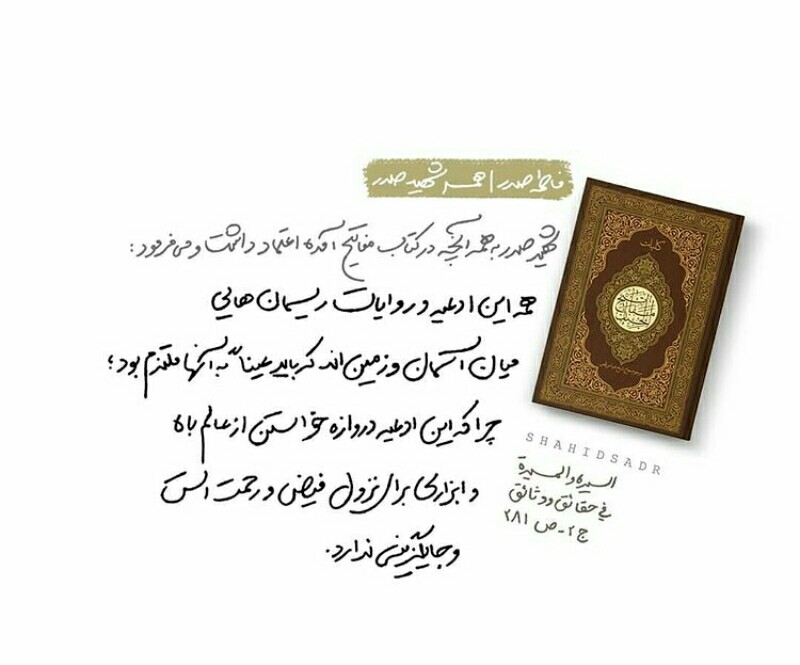 فاطمه صدر | همسر شهید صدر
شهید صدر به همه آنچه در کتاب مفاتیح آمده اعتماد داشت و می‌فرمود:
همه این ادعیه و روایات ریسمان هایی
میان آسمان و زمین اند که باید عیناً به آنها ملتزم بود؛
چرا که این ادعیه دروازه خواستن از عالم بالا
و ابزاری برای نزول فیض و رحمت است
و جایگزینی ندارد.
کلیات
SHAHIDSADR
السیرة والمسیرة
في حقائق ووثائق
ج ۲ - ص ۲۸۱